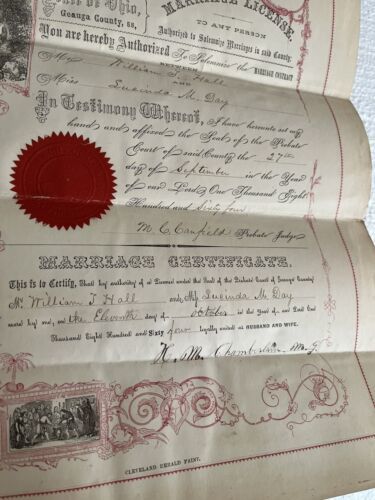 State of Ohio,
Geauga County, ss,
MARRIAGE LICENSE.
TO ANY PERSON
Authorized to Solemnize Marriages in said County:
You are hereby Authorized To Solemnize the MARRIAGE CONTRACT
BETWEEN
Mr William T. Hall
AND
Miss Lucinda M. Day
In Testimony Whereof, I have hereunto set my
hand and affixed the Seal of the Probate
Court of said County the 27th
day of September in the Year
of our Lord One Thousand Eight
Hundred and Sixty four
M. C. Canfield Probate Judge
MARRIAGE CERTIFICATE.
This is to Certify, That by authority of a License under the Seal of the Probate Court of Geauga County
Mr. William T Hall and Miss Lucinda M. Day
were by me, on the Eleventh day of October in the Year of our Lord One
Thousand Eight Hundred and Sixty four legally united as HUSBAND AND WIFE.
H. M. Chamberlain, M. G.
CLEVELAND HERALD PRINT.